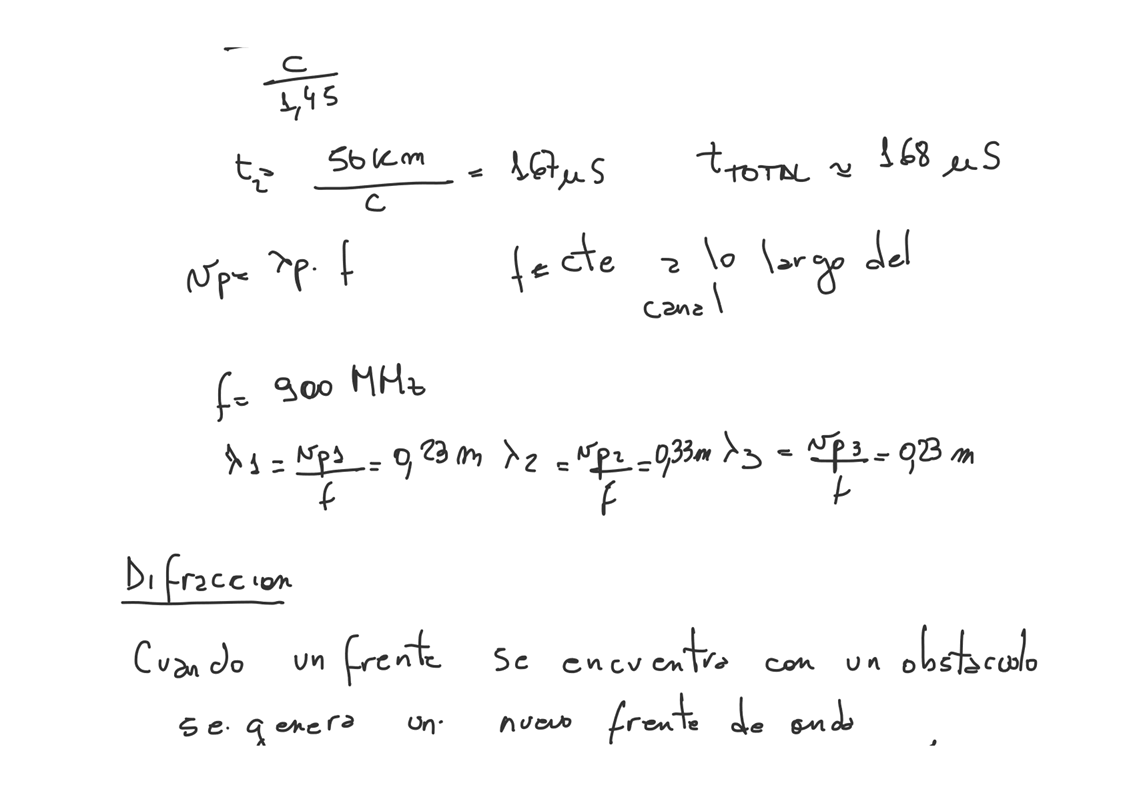 c
1,45
t2= 50 Km / c = 167 μS t TOTAL ≈ 168 μS
vp= λp. f f= cte a lo largo del
canal
f= 900 MHz
λ1 = vp1 / f = 0,23 m λ2 = vp2 / f = 0,33m λ3 = vp3 / f = 0,23 m
Difraccion
Cuando un frente se encuentra con un obstaculo
se genera un nuevo frente de onda